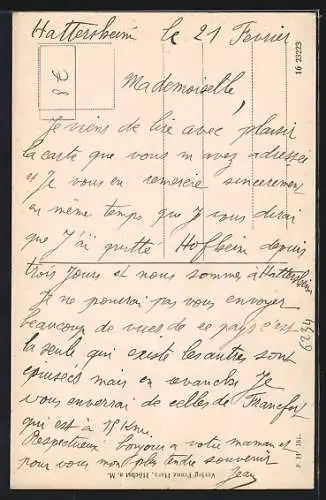 Hattersheim le 21 Fevrier
8 €
16 23223
Mademoiselle,
Je viens de lire avec plaisir
la carte que vous m'avez adressée
et Je vous en remercie sincerement
en même temps que Je vous dirai
que J'ai quitté Hofheim depuis
trois Jours et nous sommes à Hattersheim
Je ne pourai pas vous envoyer
beaucoup de vues de ce pays c'est
la seule qui existe les autres sont
épuisées mais en revanche Je
vous enverrai de celles de Francfort
qui est à Kmi
Respectueux bonjour a votre maman et
pour vous mon plus tendre souvenir
Jean
6234
Verlag Franz Harz, Höchst a. M.